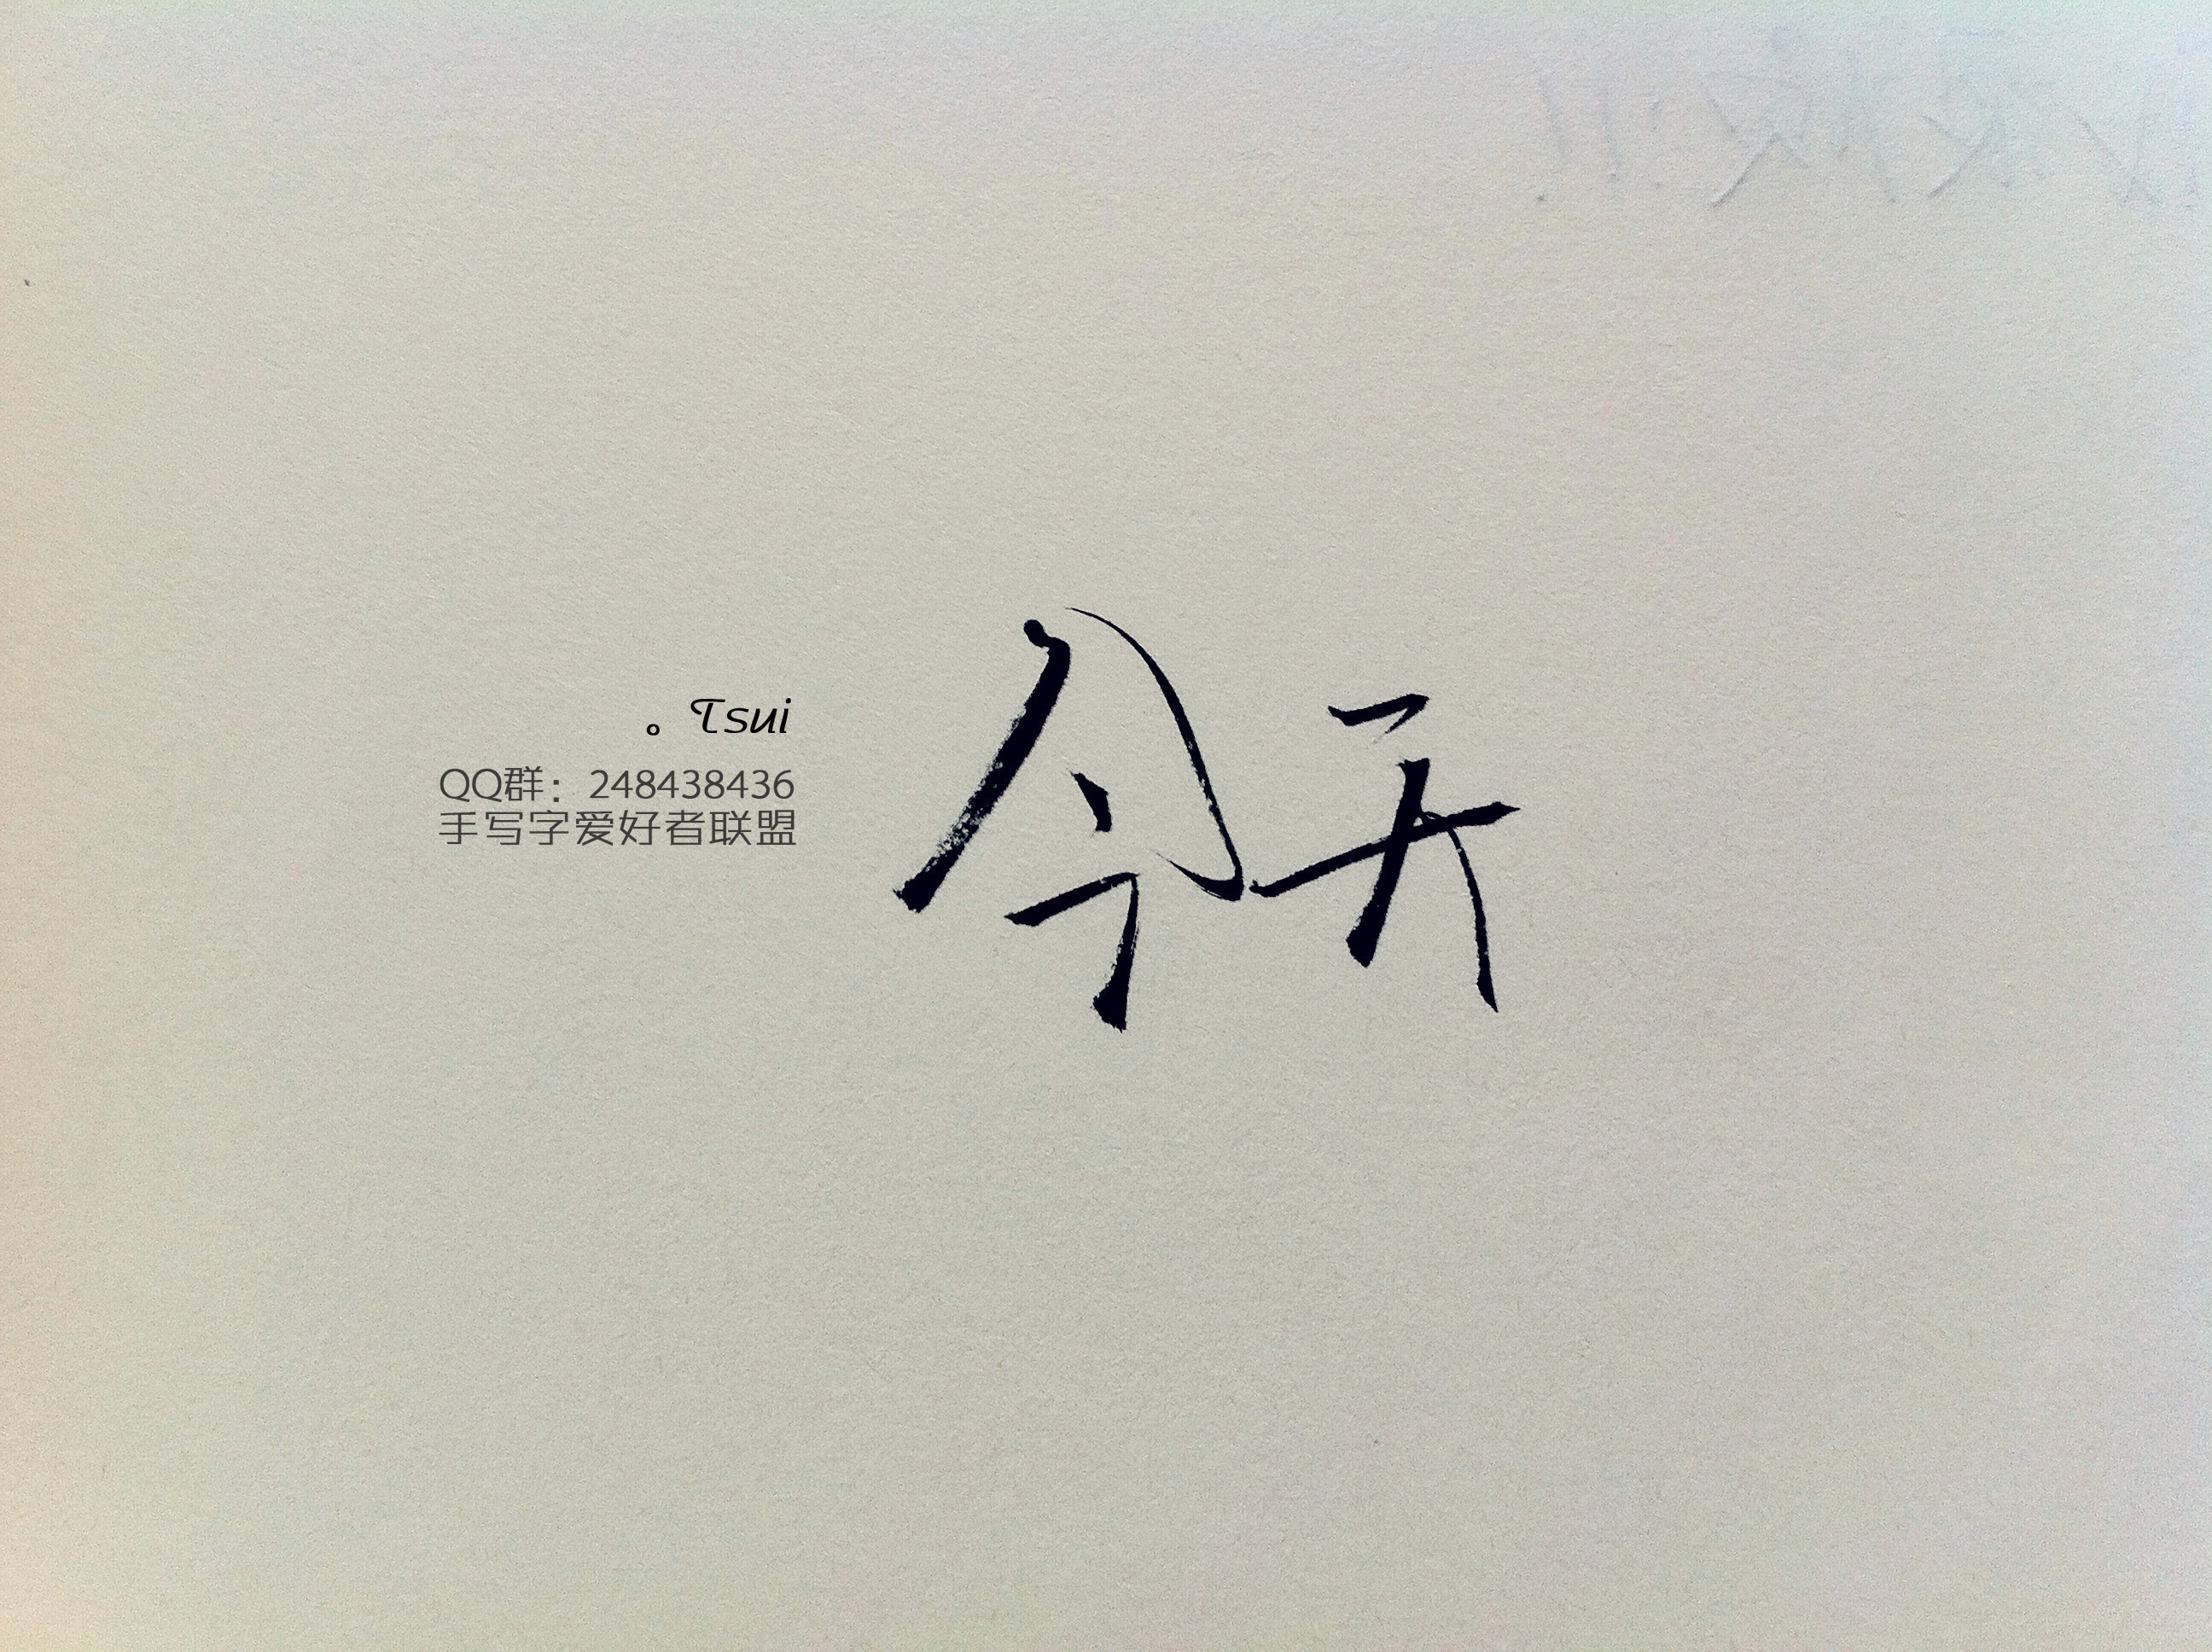 今天
。Tsui
QQ群：248438436
手写字爱好者联盟